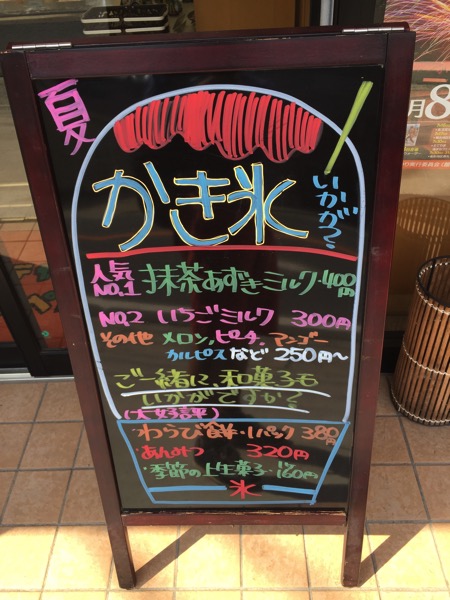 夏
かき氷
いかが？
人気No.1 抹茶あずきミルク・400円
No.2 いちごミルク 300円
その他 メロン、ピーチ、マンゴー
カルピスなど 250円〜
ご一緒に、和菓子も
いかがですか？
(大好評)
・わらび餅・1パック 380円
・あんみつ 320円
・季節の上生菓子・1ヶ160円
氷
月8